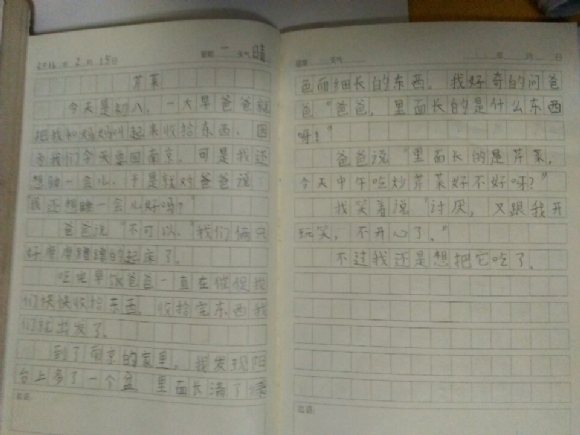 2016年2月15日 星期一 天气晴
芹菜
今天是初八，一大早爸爸就
把我和妈妈叫起来收拾东西，因
为我们今天要回南京。可是我还
想睡一会儿，于是就对爸爸说：
“我还想睡一会儿好吗？”
爸爸说“不可以。”我们俩只
好磨磨蹭蹭的起床了。
吃完早饭爸爸一直在催促我
们快快收拾东西。收拾完东西我
们就出发了。
到了南京的家里，我发现阳
台上多了一个盆，里面长满了绿
色而细长的东西。我好奇的问爸
爸“爸爸，里面长的是什么东西
呀！”
爸爸说“里面长的是芹菜，
今天中午吃炒芹菜好不好呀？”
我笑着说“讨厌，又跟我开
玩笑，不开心了。”
不过我还是想把它吃了。